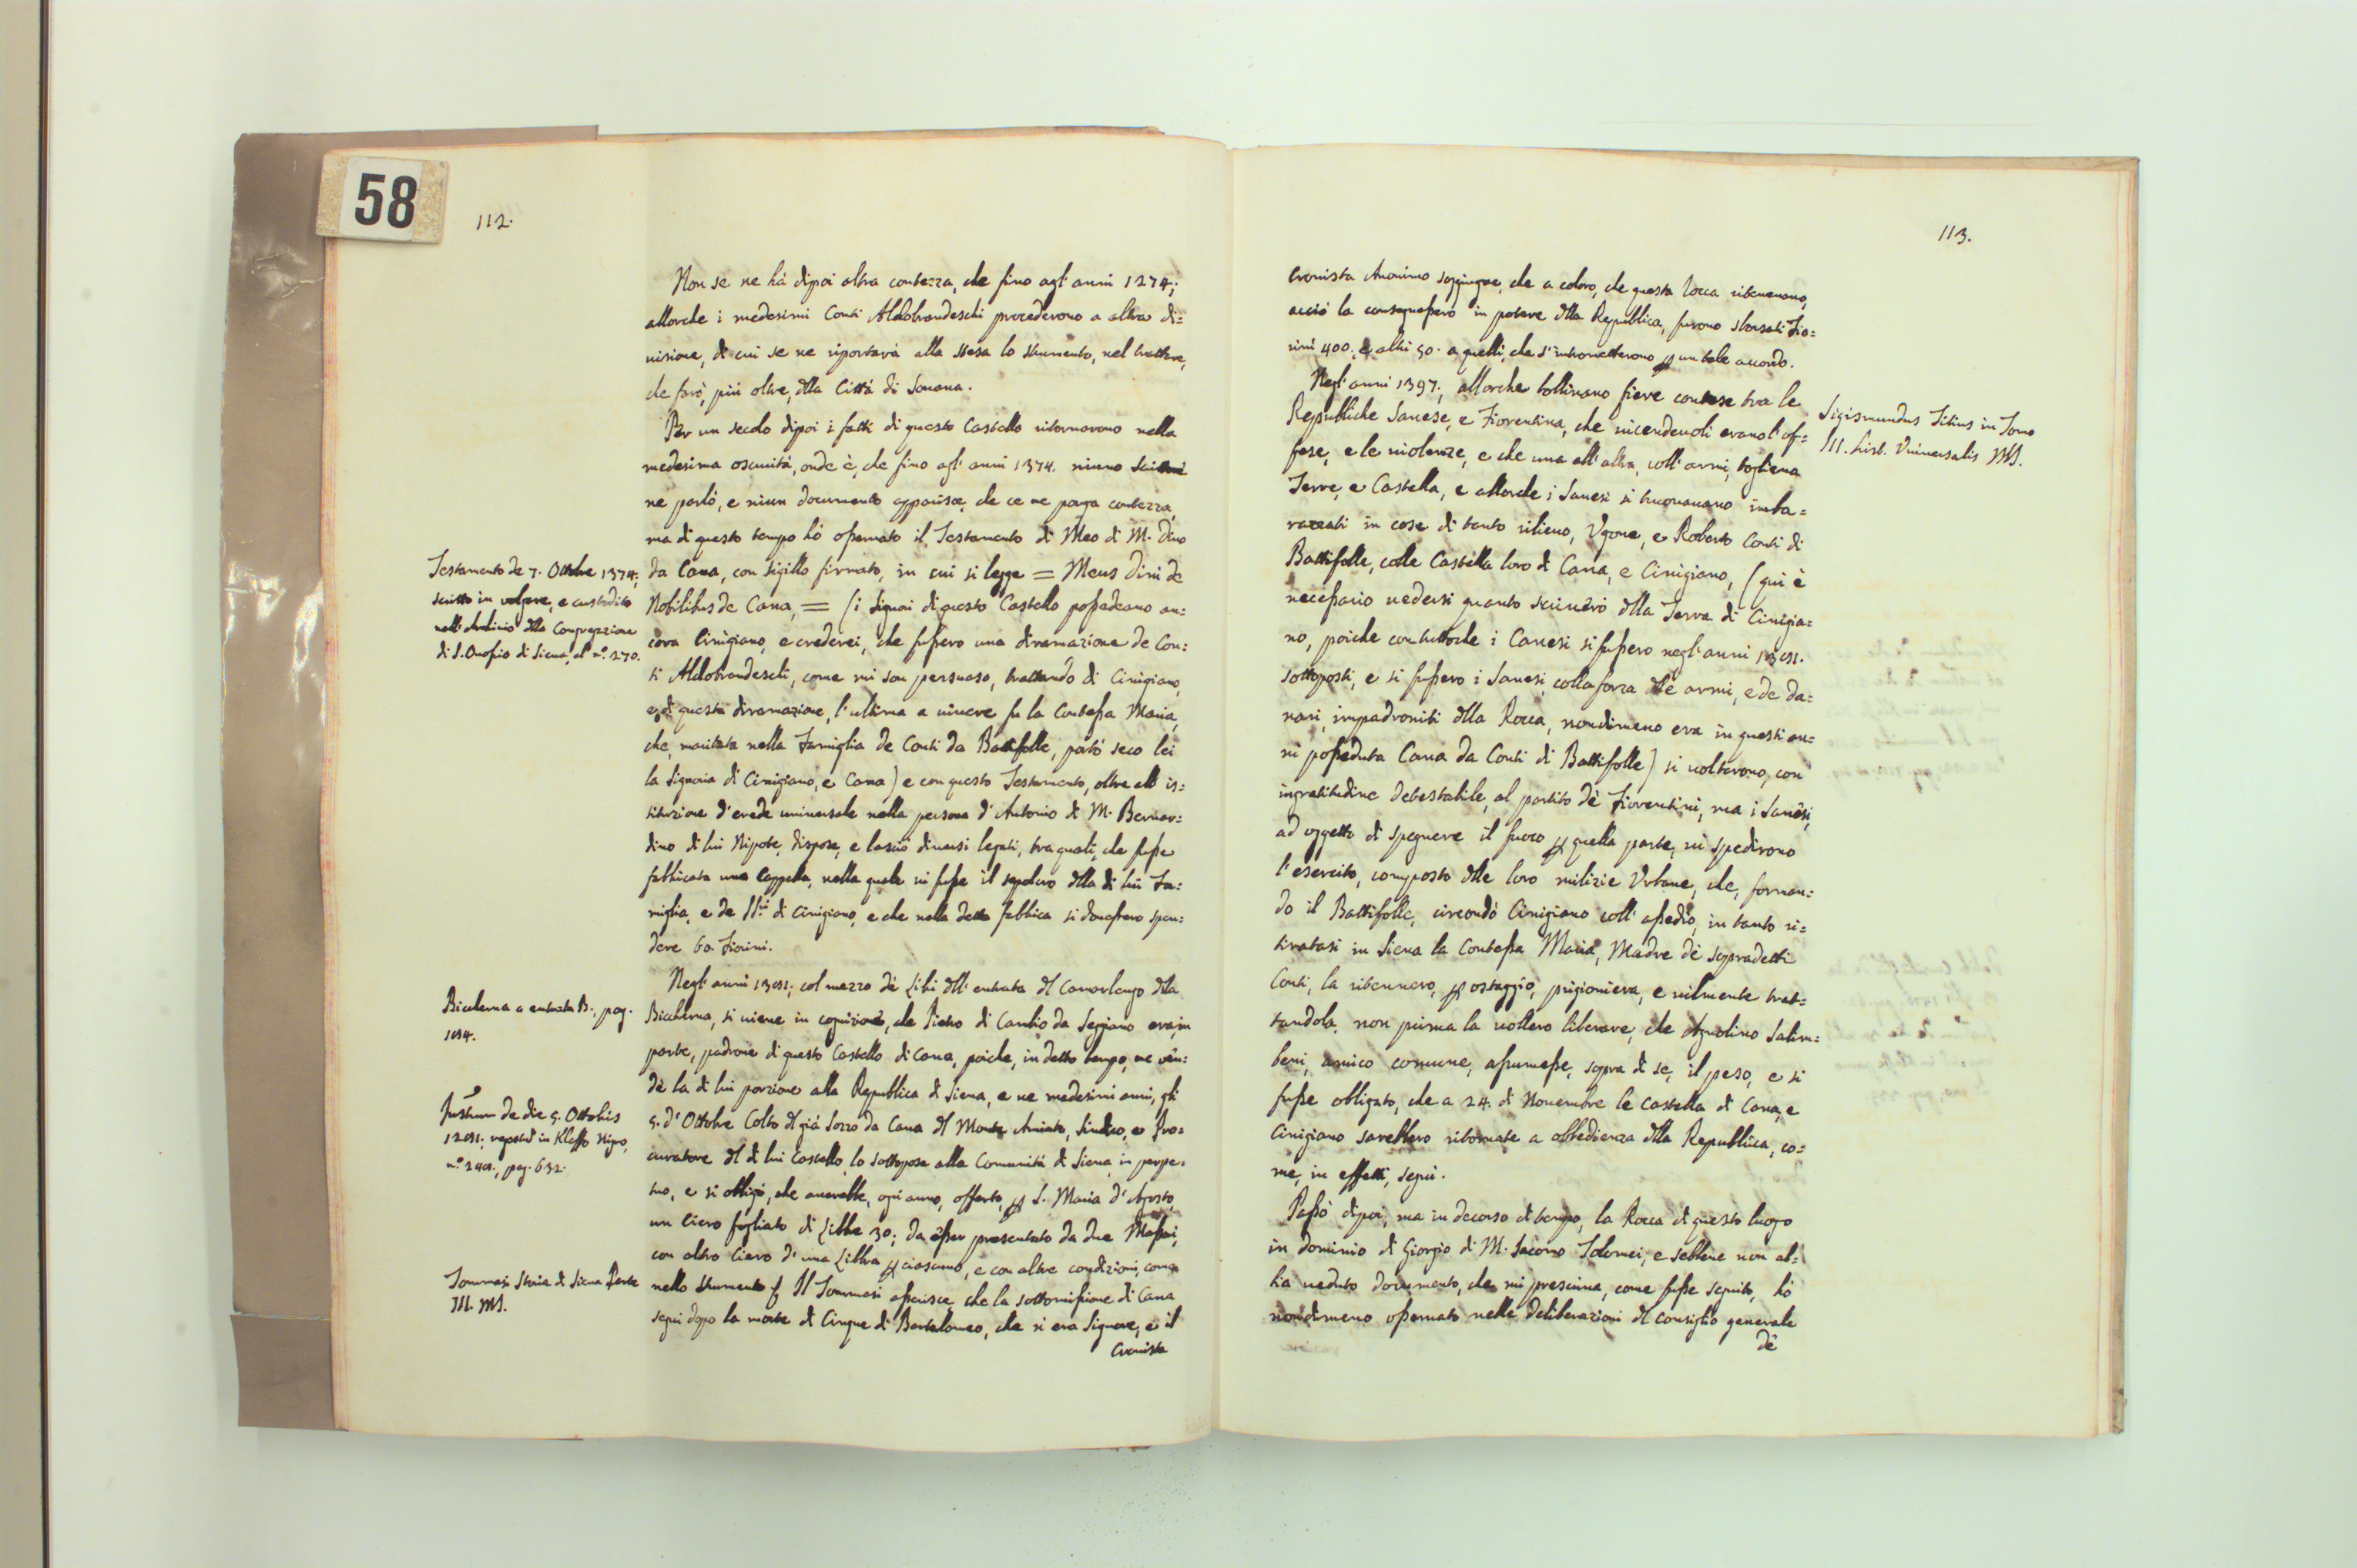 58
112.
Non se ne hà dipoi altra contezza, che fino agl'anni 1274;
allorche i medesimi Conti Aldobrandeschi procederono a altra di=
uisione, di cui se ne riportarà alla stesa lo strumento, nel trattare,
che farò, più oltre, dlla Città di Souana.
Per un secolo dipoi i fatti di questo Castello ritornarono nella
medesima oscurità, onde è, che fino agl'anni 1374. niuno
ne parlò, e niun documento apparisce, che ce ne porga contezza,
ma di questo tempo hò osseruato il Testamento di Meo di M. Dino
da Cana, con sigillo firmato, in cui si legge = Meus Dini de
Nobilibus de Cana, = (i Signori di questo Castello possedeano an=
cora Cinigiano, e crederei, che fussero una diramazione de Con=
ti Aldobrandeschi, come mi son persuaso, trattando di Cinigiano,
e di questa diramazione, l'ultima a uiuere fu la Contessa Maria,
che, maritata nella Famiglia de Conti da Battifolle, portò seco lei
la Signoria di Cinigiano, e Cana) e con questo Testamento, oltre all'is=
tituzione d'erede uniuersale nella persona d'Antonio di M. Bernar=
dino di lui Nipote, dispose, e lasciò diuersi legati, tra quali, che fusse
fabbricata una Cappella, nella quale ui fusse il sepolcro dlla di lui Fa=
miglia, e de SS.ri di Cinigiano, e che nella detta fabbrica si douessero spen=
dere 60. Fiorini.
Negl'anni 1391; col mezzo dè Libri dll'entrata dl Camarlengo dlla
Biccherna, si uiene in cognizione, che Pietro di Cambio da Seggiano era, in
parte, padrone di questo Castello di Cana, poiche, in detto tempo, ne ven=
dè la di lui porzione alla Republica di Siena, e ne medesimi anni, gli
5. d'Ottobre Colto dl già Sozzo da Cana dl Monte Amiato, Sindico, e Pro=
curatore dl di lui Castello, lo sottopose alla Comunità di Siena in perpe=
tuo, e si obligò, che auerebbe, ogni anno, offerto, p S. Maria d'Agosto,
un Ciero fogliato di Libbre 30; da esser presentato da due Massari,
con altro Ciero d'una Libbra p ciascuno, e con altre condizioni, come
nello strumento Il Tommasi asserisce, che la sottomissione di Cana
seguì dopo la morte di Cinque di Bartolomeo, che ui era Signore, e il
Cronista
Testamento de 7. Ottobre 1374;
scritto in volgare, e custodito
nell'Archiuio dlla Congregazione
di S. Onofrio di Siena, al n.º 270.
Biccherna a entrata B., pag.
194.
Instrum de die 5. Ottobris
1291; in Kleffo Nigro,
n.º 249., pag. 632.
Tommasi Storia di Siena Parte
III. MS.
113.
Cronista Anonimo soggiugne, che a coloro, che questa Rocca riteneuano,
acciò la consegnassero in potere dlla Republica, furono sborsati Fio=
rini 400. e altri 50. a quelli, che s'intromettessero p un tale accordo.
Negl'anni 1397; allorche bolliuano fiere contese tra le
Republiche Sanese, e Fiorentina, che uicendeuoli erano l'of=
fese, e le uiolenze, e che una all'altra, coll'armi, toglieua
Terre, e Castella, e allorche i Sanesi si truouauano imba=
razzati in cose di tanto rilieuo, Vgone, e Roberto Conti di
Battifolle, colle Castella loro di Cana, e Cinigiano, (qui è
necessario uedersi quanto scriuerò dlla Terra di Cinigia=
no, poiche contuttoche i Canesi si fussero negl'anni 1391.
sottoposti, e si fussero i Sanesi, colla forza dlle armi, e de da=
nari, impadroniti dlla Rocca, nondimeno era in questi an=
ni posseduta Cana da Conti di Battifolle) si uoltarono, con
ingratitudine detestabile, al partito dè Fiorentini, ma i Sanesi,
ad oggetto di spegnere il fuoco p quella parte, ui spedirono
l'esercito, composto dlle loro milizie Vrbane, che, forman=
do il Battifolle, circondò Cinigiano coll'assedio, in tanto ri=
tiratasi in Siena la Contessa Maria, Madre dè sopradetti
Conti, la ritennero, p ostaggio, prigioniera, e uilmente trat=
tandola, non prima la uollero liberare, che Agnolino Salim=
beni, amico comune, assumesse, sopra di se, il peso, e si
fusse obligato, che a 24. di Nouembre le Castella di Cana, e
Cinigiano sarebbero ritornate a obbedienza dlla Republica, co=
me, in effetti, seguì.
Passò dipoi, ma in decorso di tempo, la Rocca di questo luogo
in dominio di Giorgio di M. Iacomo Tolomei, e sebbene non ab=
bia ueduto documento, che mi prescriua, come fusse seguito, hò
nondimeno osseruato nelle Deliberazioni dl Consiglio generale
dè
Sigismundus Titius in Tomo
III. Hist. Vniuersalis MS.